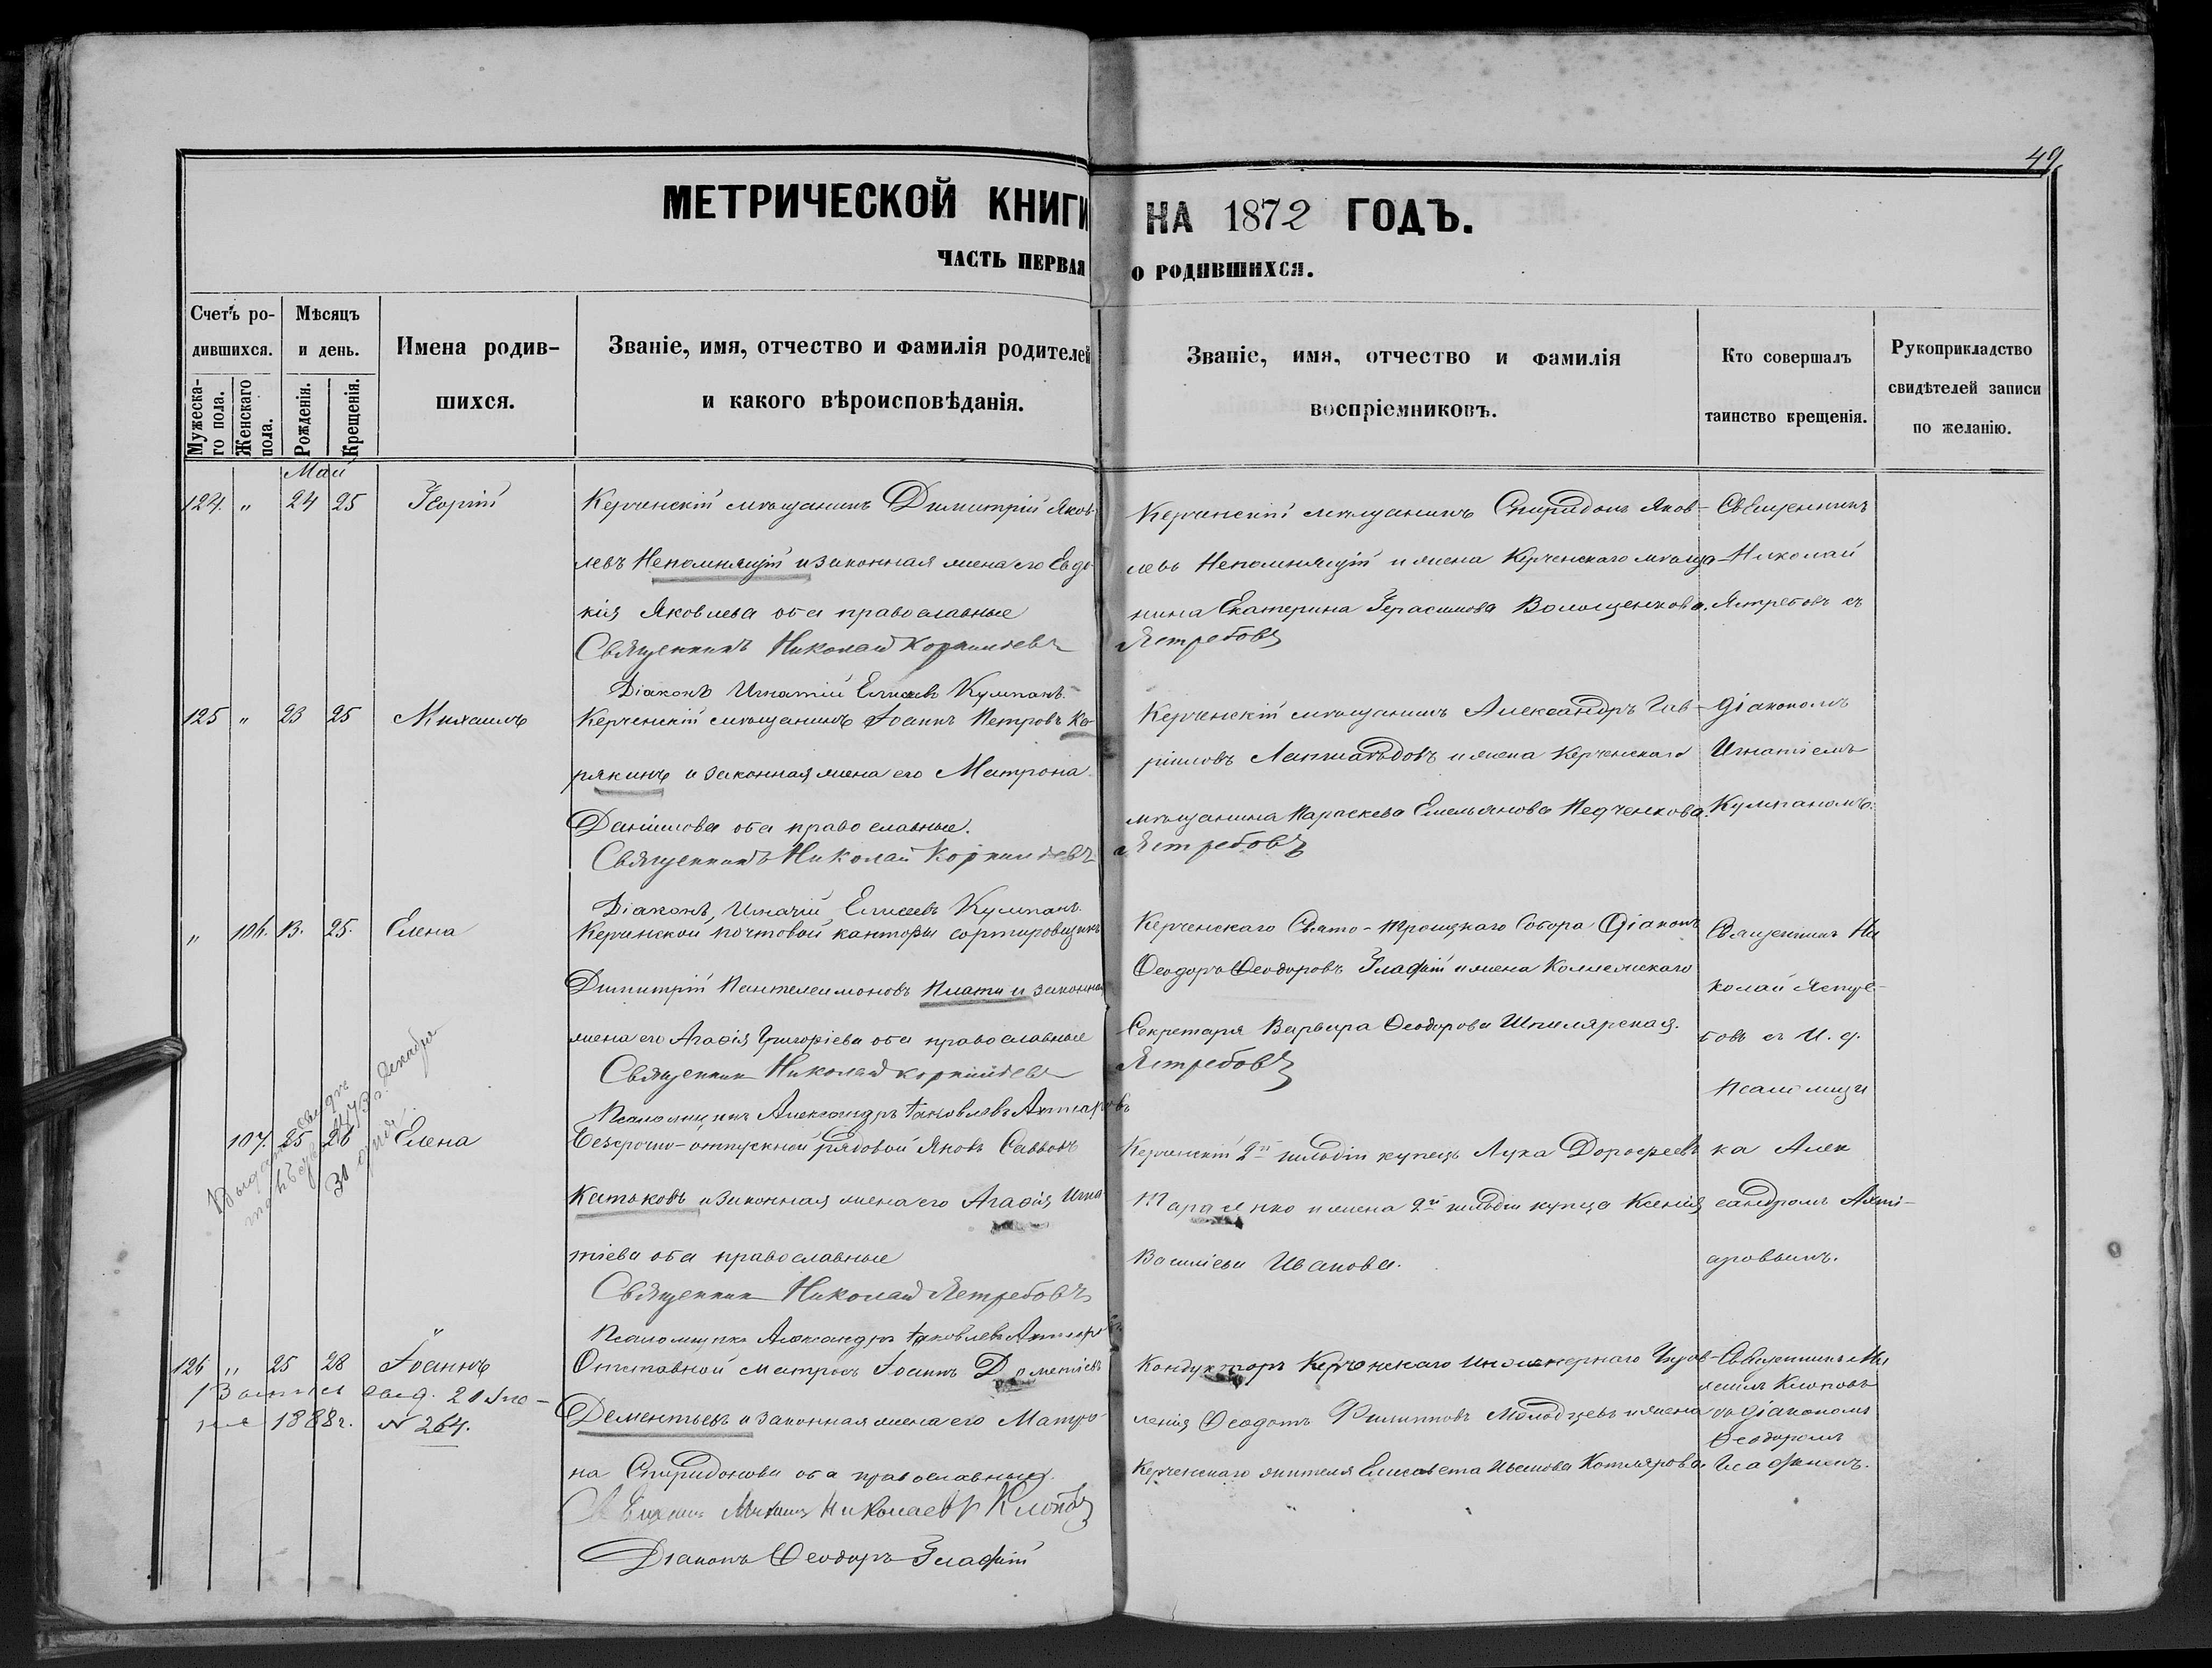 49
МЕТРИЧЕСКОЙ КНИГИ НА 1872 ГОДЪ.
ЧАСТЬ ПЕРВАЯ О РОДИВШИХСЯ.
Счетъ ро-
дившихся.
Мужеска-
го пола.
Женскаго
пола.
Мѣсяцъ
и день.
Рожденія.
Крещенія.
Имена родив-
шихся.
Званіе, имя, отчество и фамилія родителей
и какого вѣроисповѣданія.
Званіе, имя, отчество и фамилія
воспріемниковъ.
Кто совершалъ
таинство крещенія.
Рукоприкладство
свидѣтелей записи
по желанію.
Май
124. " 24 25 Георгій
Керченскій мѣщанинъ Димитрій Яков-
левъ Непомнящій и законная жена его Евдо-
кія Яковлева оба православные
Священникъ Николай Корнильевъ
Діаконъ Игнатій Елисеевъ Кумпанъ.
Керченскій мѣщанинъ Спиридонъ Яков-
левъ Непомнящій и жена Керченскаго мѣща-
нина Екатерина Герасимова Волощенкова.
Ястребовъ
Священникъ
Николай
Ястребовъ съ
125 " 23 25 Михаилъ
Керченскій мѣщанинъ Іоаннъ Петровъ Ко-
рякинъ и законная жена его Матрона
Даніилова оба православные.
Священникъ Николай Корнильевъ
Діаконъ Игнатій Елисеевъ Кумпанъ.
Керченскій мѣщанинъ Александръ Гав-
ріиловъ и жена Керченскаго
мѣщанина Параскева Емельянова Педченкова.
Ястребовъ
діакономъ
Игнатіемъ
Кумпаномъ.
" 106. 13. 25. Елена
Керченской почтовой канторы сортировщикъ
Димитрій Пантелеимоновъ Плати и законная
жена его Агафія Григоріева оба православные
Священник Николай Корнильевъ
Псаломщикъ Александръ Іаковлевъ
Керченскаго Свято-Троицкаго Собора Діаконъ
Ѳеодоръ Ѳеодоровъ Глафій и жена Коллежскаго
Секретаря Варвара Ѳеодорова Шпилярская.
Ястребовъ
Священникъ Ни
колай Ястре-
бовъ съ И. д.
Псаломщи
107. 25 26 Елена
Безсрочно-отпускной рядовой Яковъ Саввовъ
Катьковъ и законная жена его Агафія Игна-
тіева оба православные
Священник Николай Ястребовъ
Псаломщикъ Александръ Іаковлевъ
Керченскій 2й гильдіи купецъ Лука Дорофеевъ
Тарасенко и жена 2й гильдіи купца Ксенія
Василіева Иванова.
ка Алек
сандромъ
126 " 25 28 Іоаннъ
Выпись 20
1888г. N 264.
Отставной матросъ Іоаннъ Дометіевъ
Дементьевъ и законная жена его Матро-
на Спиридонова оба православные.
Священникъ Михаилъ Николаевъ Клоповъ
Діаконъ Ѳеодоръ Глафій
Кондукторъ Керченскаго Инженернаго Управ-
ленія Ѳеодотъ Филипповъ Молодцевъ и жена
Керченскаго жителя Елисавета Иванова Котлярова
Священникъ Ми
хаилъ Клоповъ
съ діакономъ
Ѳеодоромъ